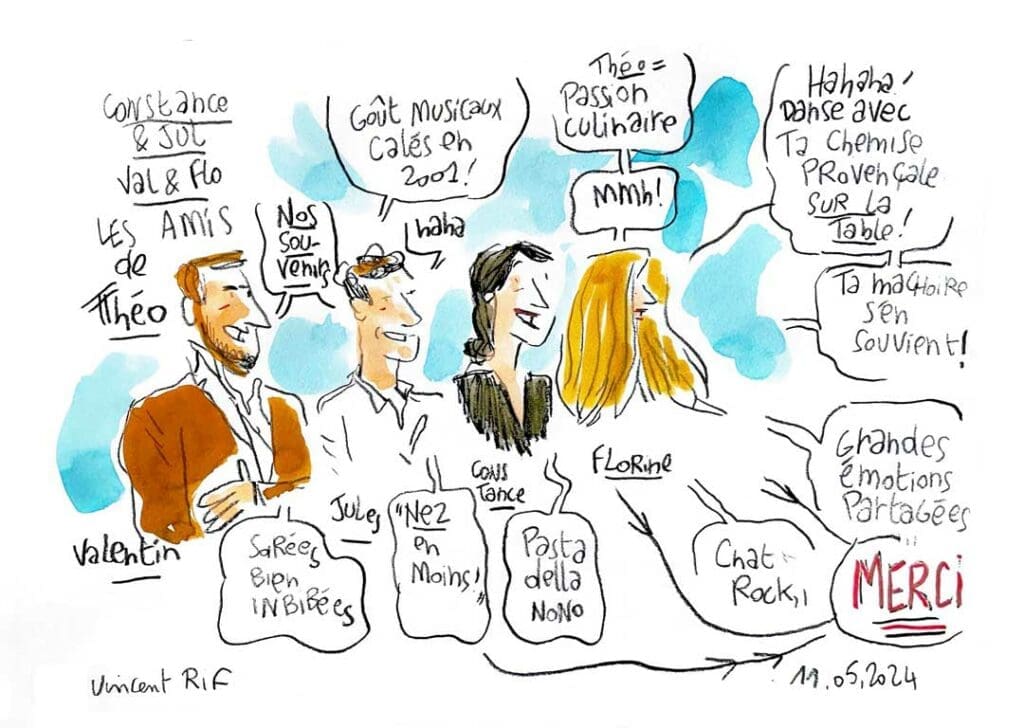 Constance
& Jul
Val & Flo
LES AMIS
de
Théo
Nos
sou-
venirs
Goût Musicaux
calés en
2001!
haha
Théo =
Passion
culinaire
MMh!
Hahaha!
Danse avec
Ta Chemise
PRovençale
SUR la
Table!
Ta machoire
s'en
souvient!
Grandes
émotions
Partagées
MERCi
Valentin
SoRées
Bien
iNBiBées
Jules
"Nez
en
Moins!"
Cons
tance
Pasta
della
NoNo
FLoRine
Chat
Rock,,
Vincent RiF
11.05.2024